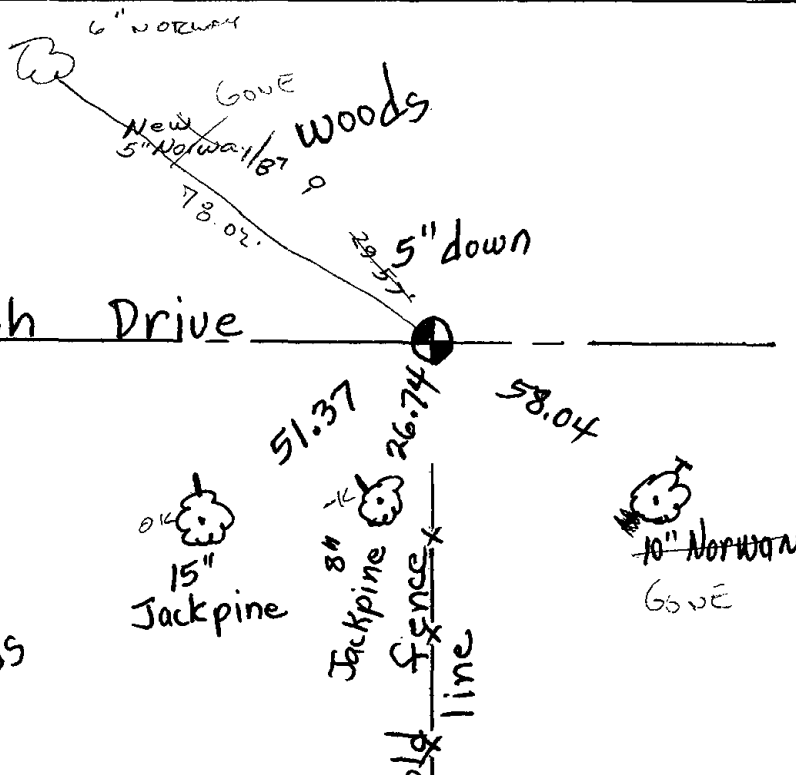 6" NORWAY
GONE
woods
New
5" Norway
78.02'
29.57'
5" down
h Drive
51.37
26.74
58.04
OK
15"
Jackpine
8"
Jackpine
fence
line
10" Norwa
GONE